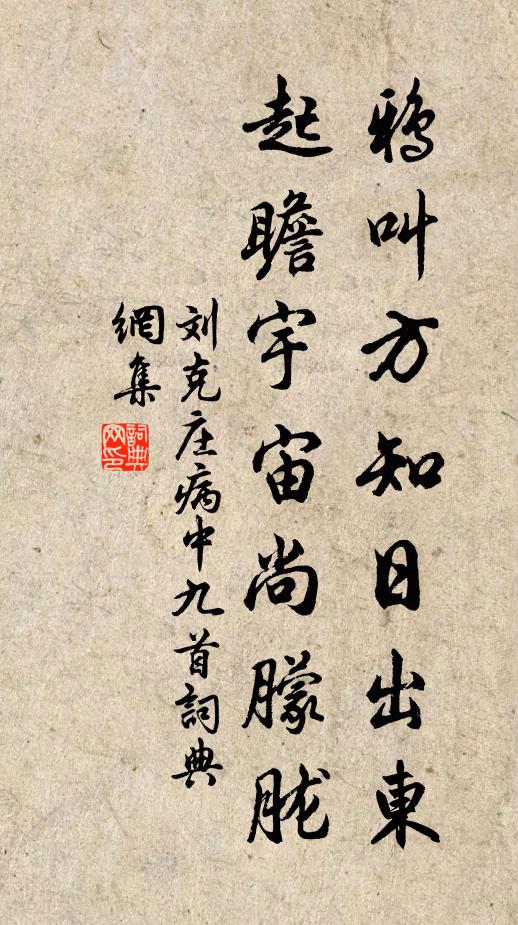 鴉叫方知日出東
起瞻宇宙尚朦胧
刘克庄病中九首詞典
網集
詞典
网印